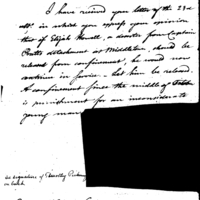 I have received your letter of the 23d
ulto in which you express your opinion
that if Elijah Howell, a deserter from Captain
detachment at Middletown, should be
released from confinement, he would now
continue in service — let him be released.
A confinement since the middle of
is punishment for an inconsiderate
young man
signature of Timothy Pickering